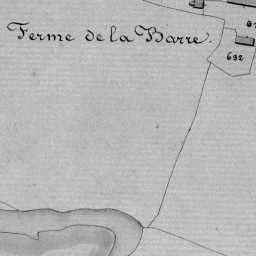 Ferme de la Barre.
632